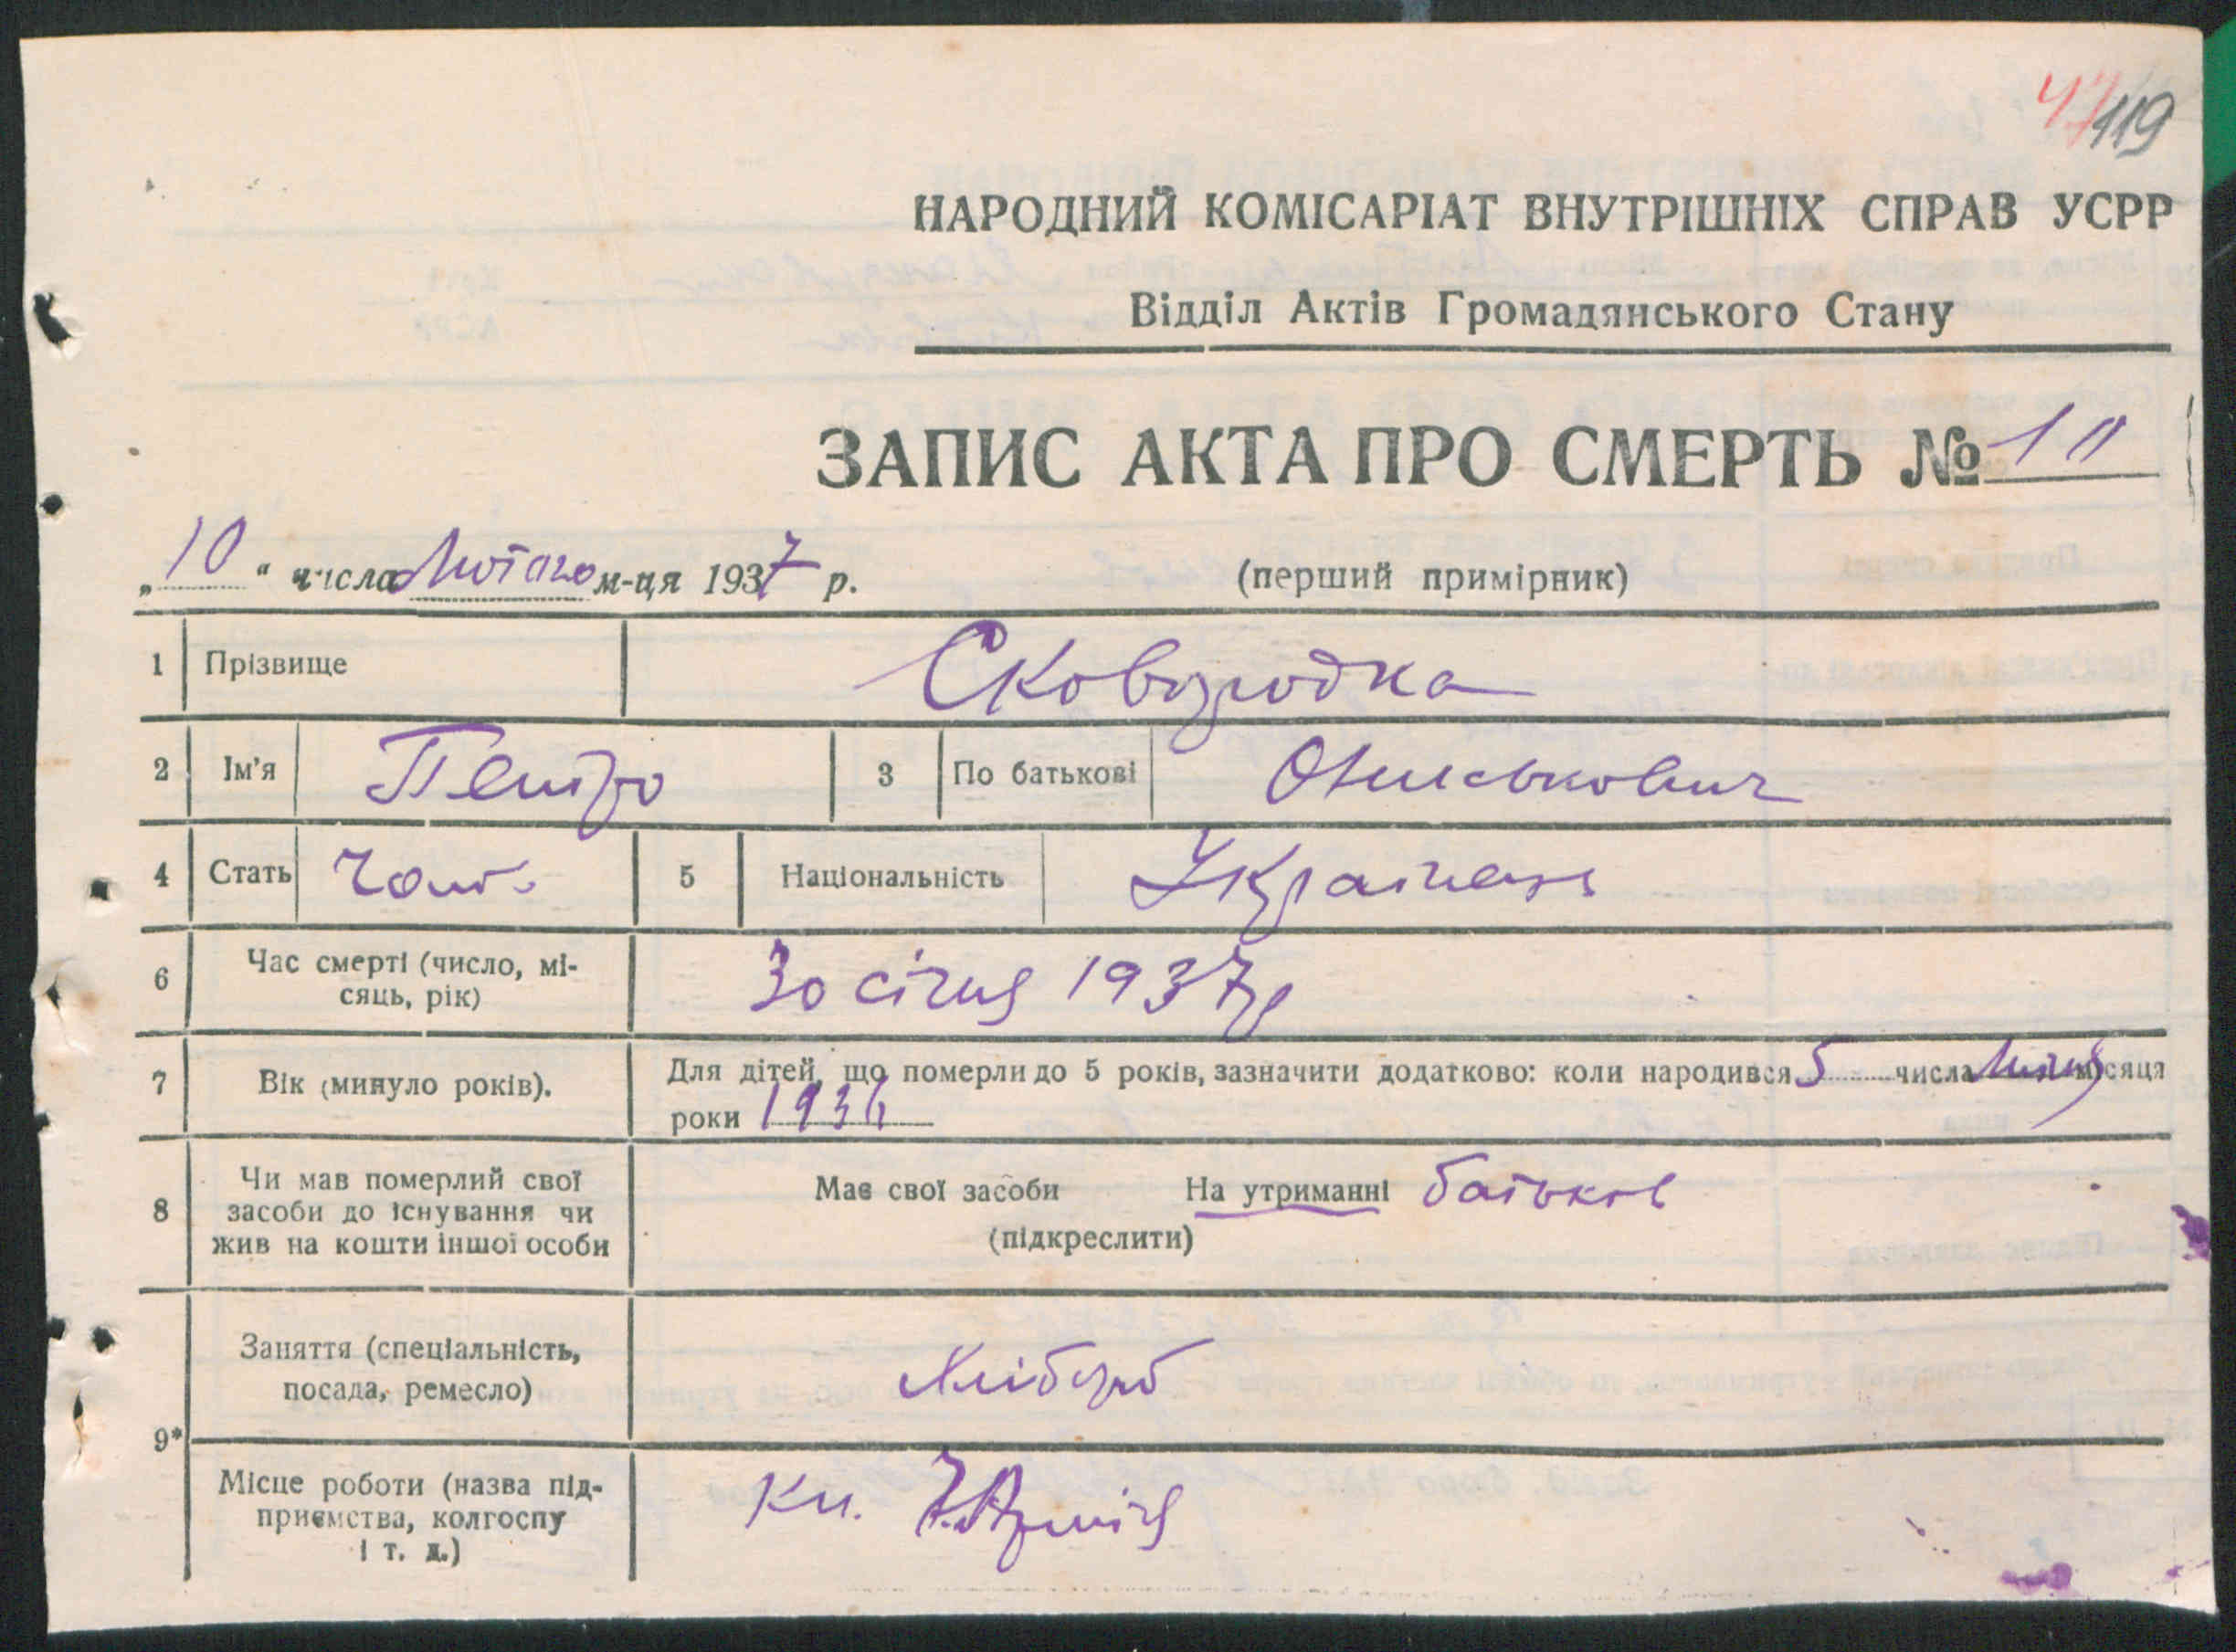 47/119
НАРОДНИЙ КОМІСАРІАТ ВНУТРІШНІХ СПРАВ УСРР
Відділ Актів Громадянського Стану
ЗАПИС АКТА ПРО СМЕРТЬ № 10
„10“ числа Лютого м-ця 1937 р. (перший примірник)
1 Прізвище Сковородка
2 Ім'я Петро 3 По батькові
4 Стать Чол. 5 Національність Українець
6 Час смерті (число, мі-
сяць, рік) 30 січня 1937р
7 Вік (минуло років). Для дітей, що померли до 5 років, зазначити додатково: коли народився 5 числа місяця
роки 1936
8 Чи мав померлий свої
засоби до існування чи
жив на кошти іншої особи
Має свої засоби На утриманні батьків
(підкреслити)
9*
Заняття (спеціальність,
посада, ремесло) Хлібороб
Місце роботи (назва під-
приємства, колгоспу
і т. д.)